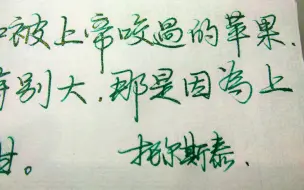 被上帝咬過的苹果.
别大.那是因為上
。 托尔斯泰.